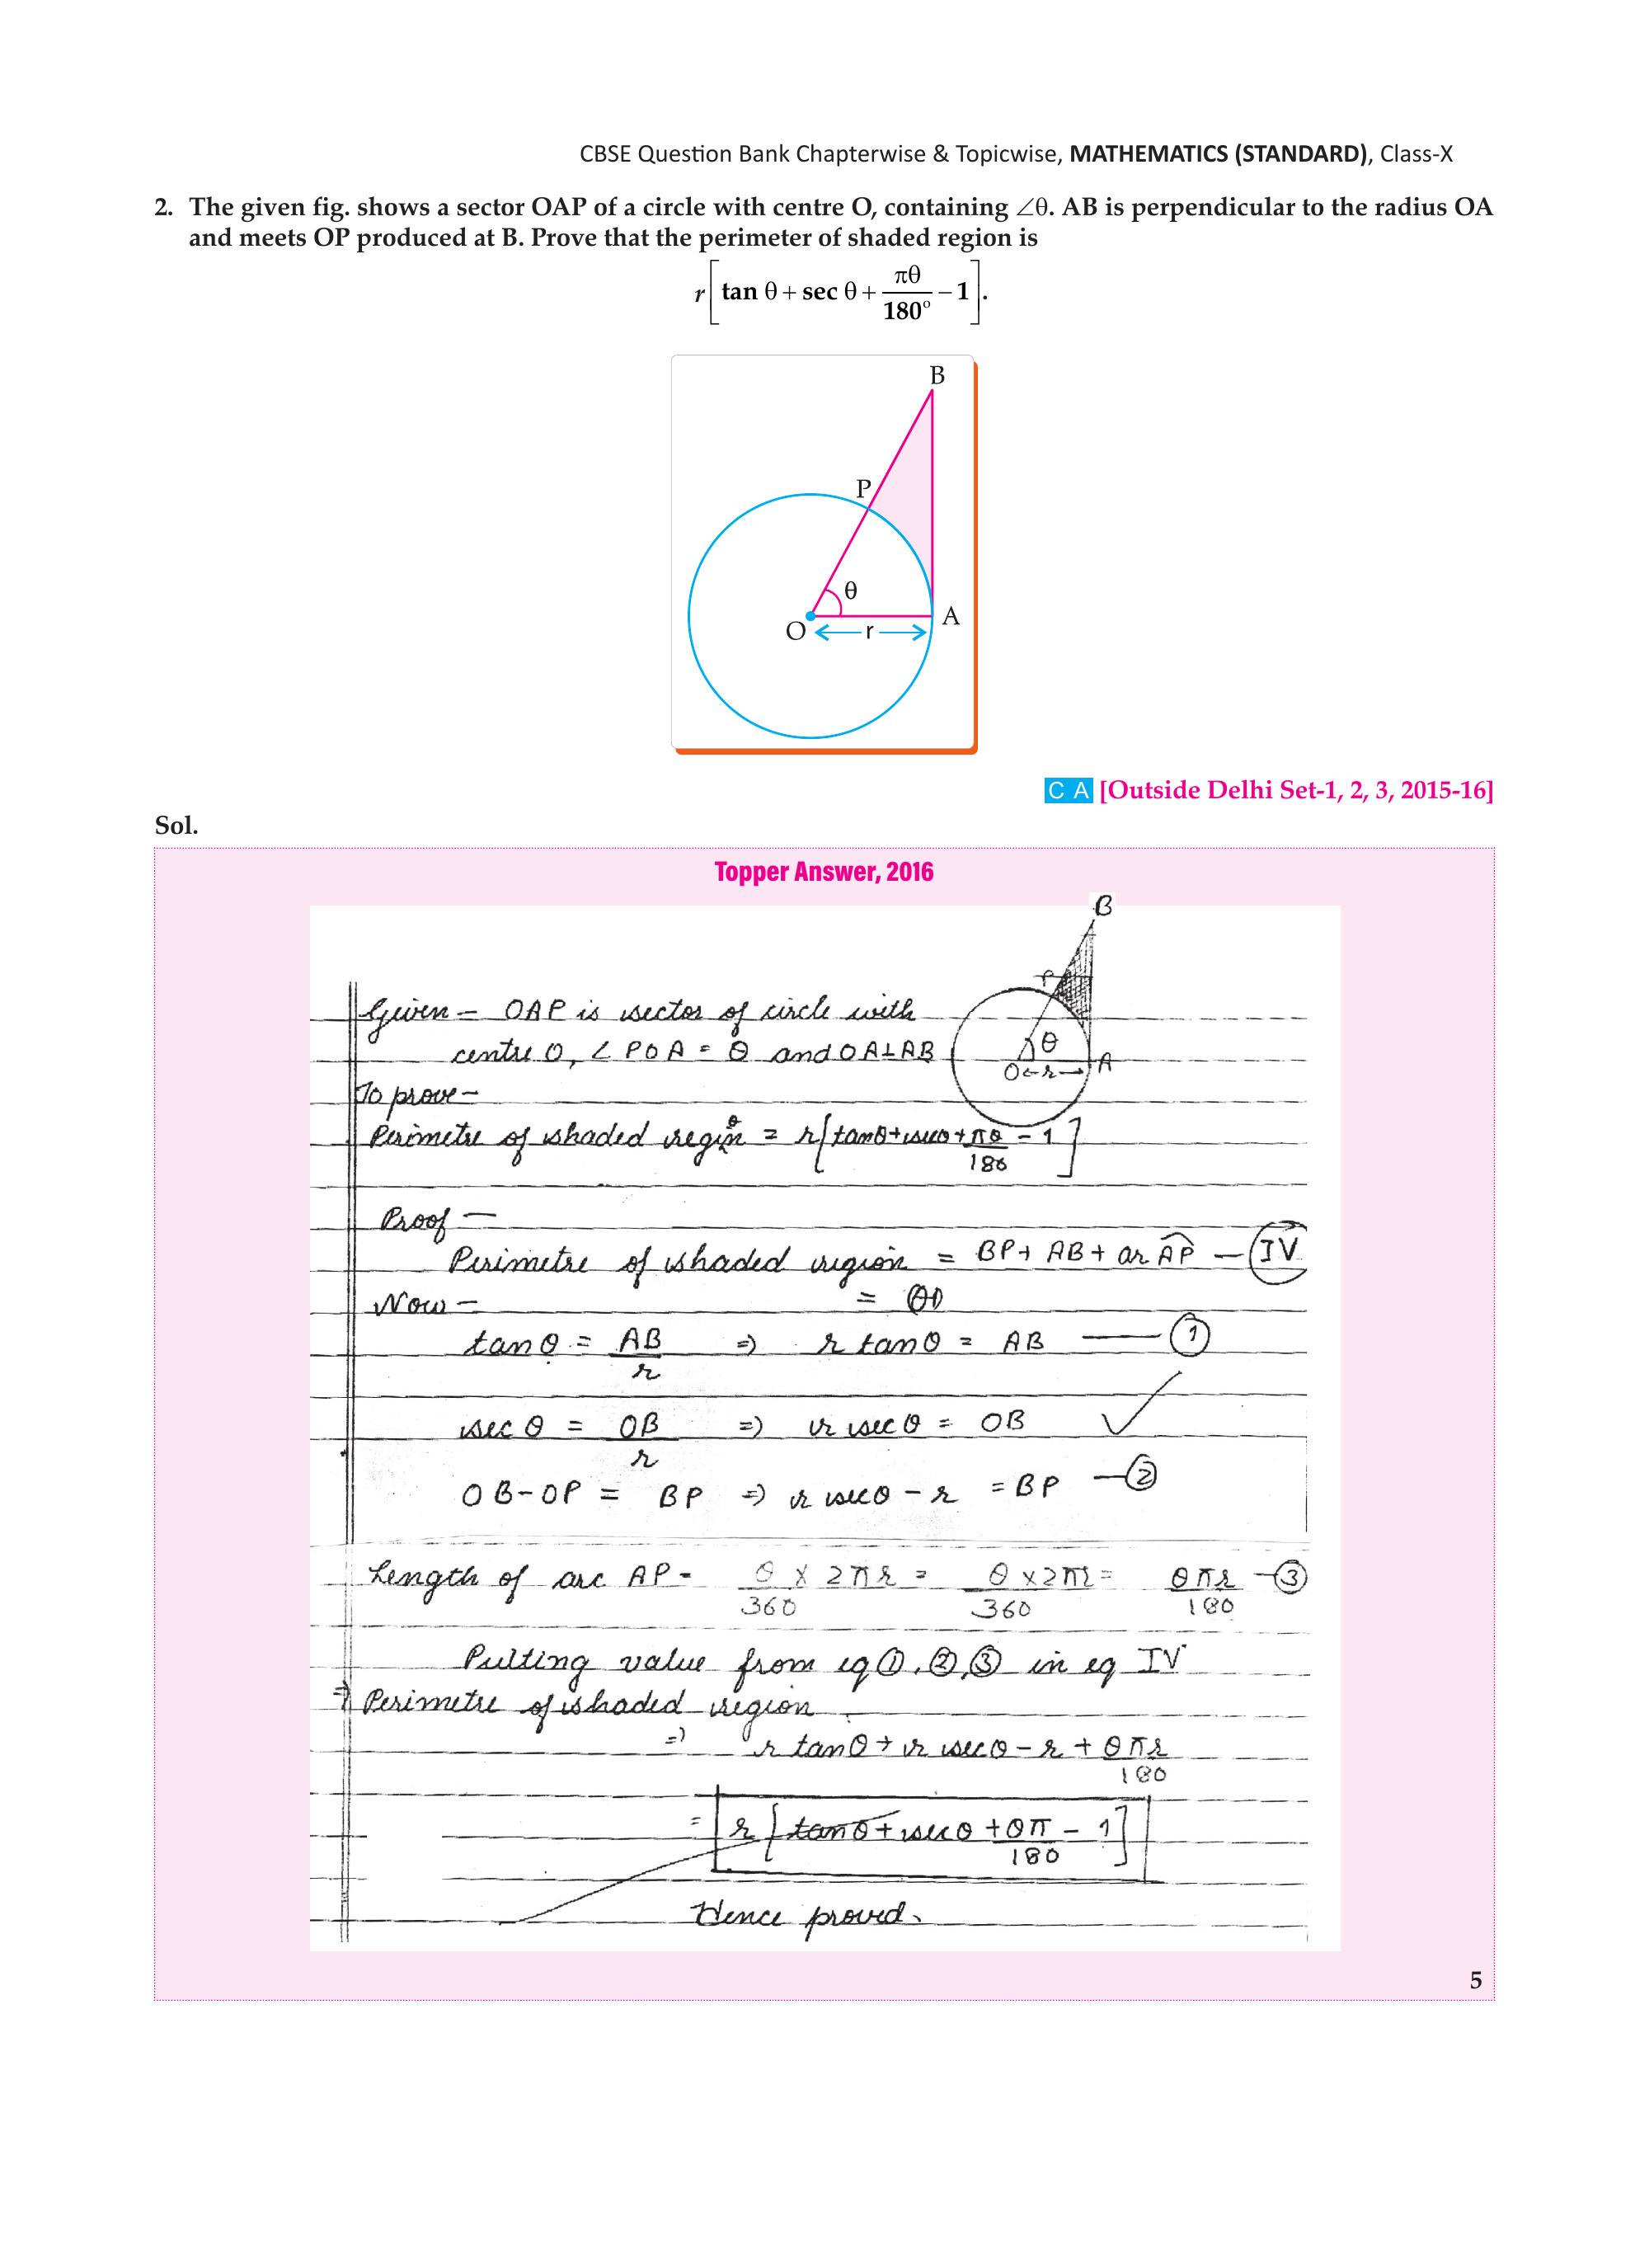 CBSE Question Bank Chapterwise & Topicwise, MATHEMATICS (STANDARD), Class-X
2. The given fig. shows a sector OAP of a circle with centre O, containing ∠θ. AB is perpendicular to the radius OA
and meets OP produced at B. Prove that the perimeter of shaded region is
r[tan θ + sec θ + πθ/180° − 1].
B
P
θ
O
r
A
C A [Outside Delhi Set-1, 2, 3, 2015-16]
Sol.
Topper Answer, 2016
B
P
θ
O ← r → A
Given – OAP is sector of circle with
centre O, ∠POA = θ and OA⊥AB
To prove –
Perimetre of shaded region = r[tanθ + secθ + πθ/180 − 1]
Proof –
Perimetre of shaded region = BP + AB + ar AP — IV
Now –
=
tan θ = AB/r ⇒ r tan θ = AB — 1
sec θ = OB/r ⇒ r sec θ = OB
OB – OP = BP ⇒ r secθ – r = BP — 2
Length of arc AP = θ/360 × 2πr = θ × 2πr/360 = θπr/180 — 3
Putting value from eq 1, 2, 3 in eq IV
⇒ Perimetre of shaded region
⇒ r tanθ + r secθ – r + θπr/180
= r[tanθ + secθ + θπ/180 – 1]
Hence proved.
5